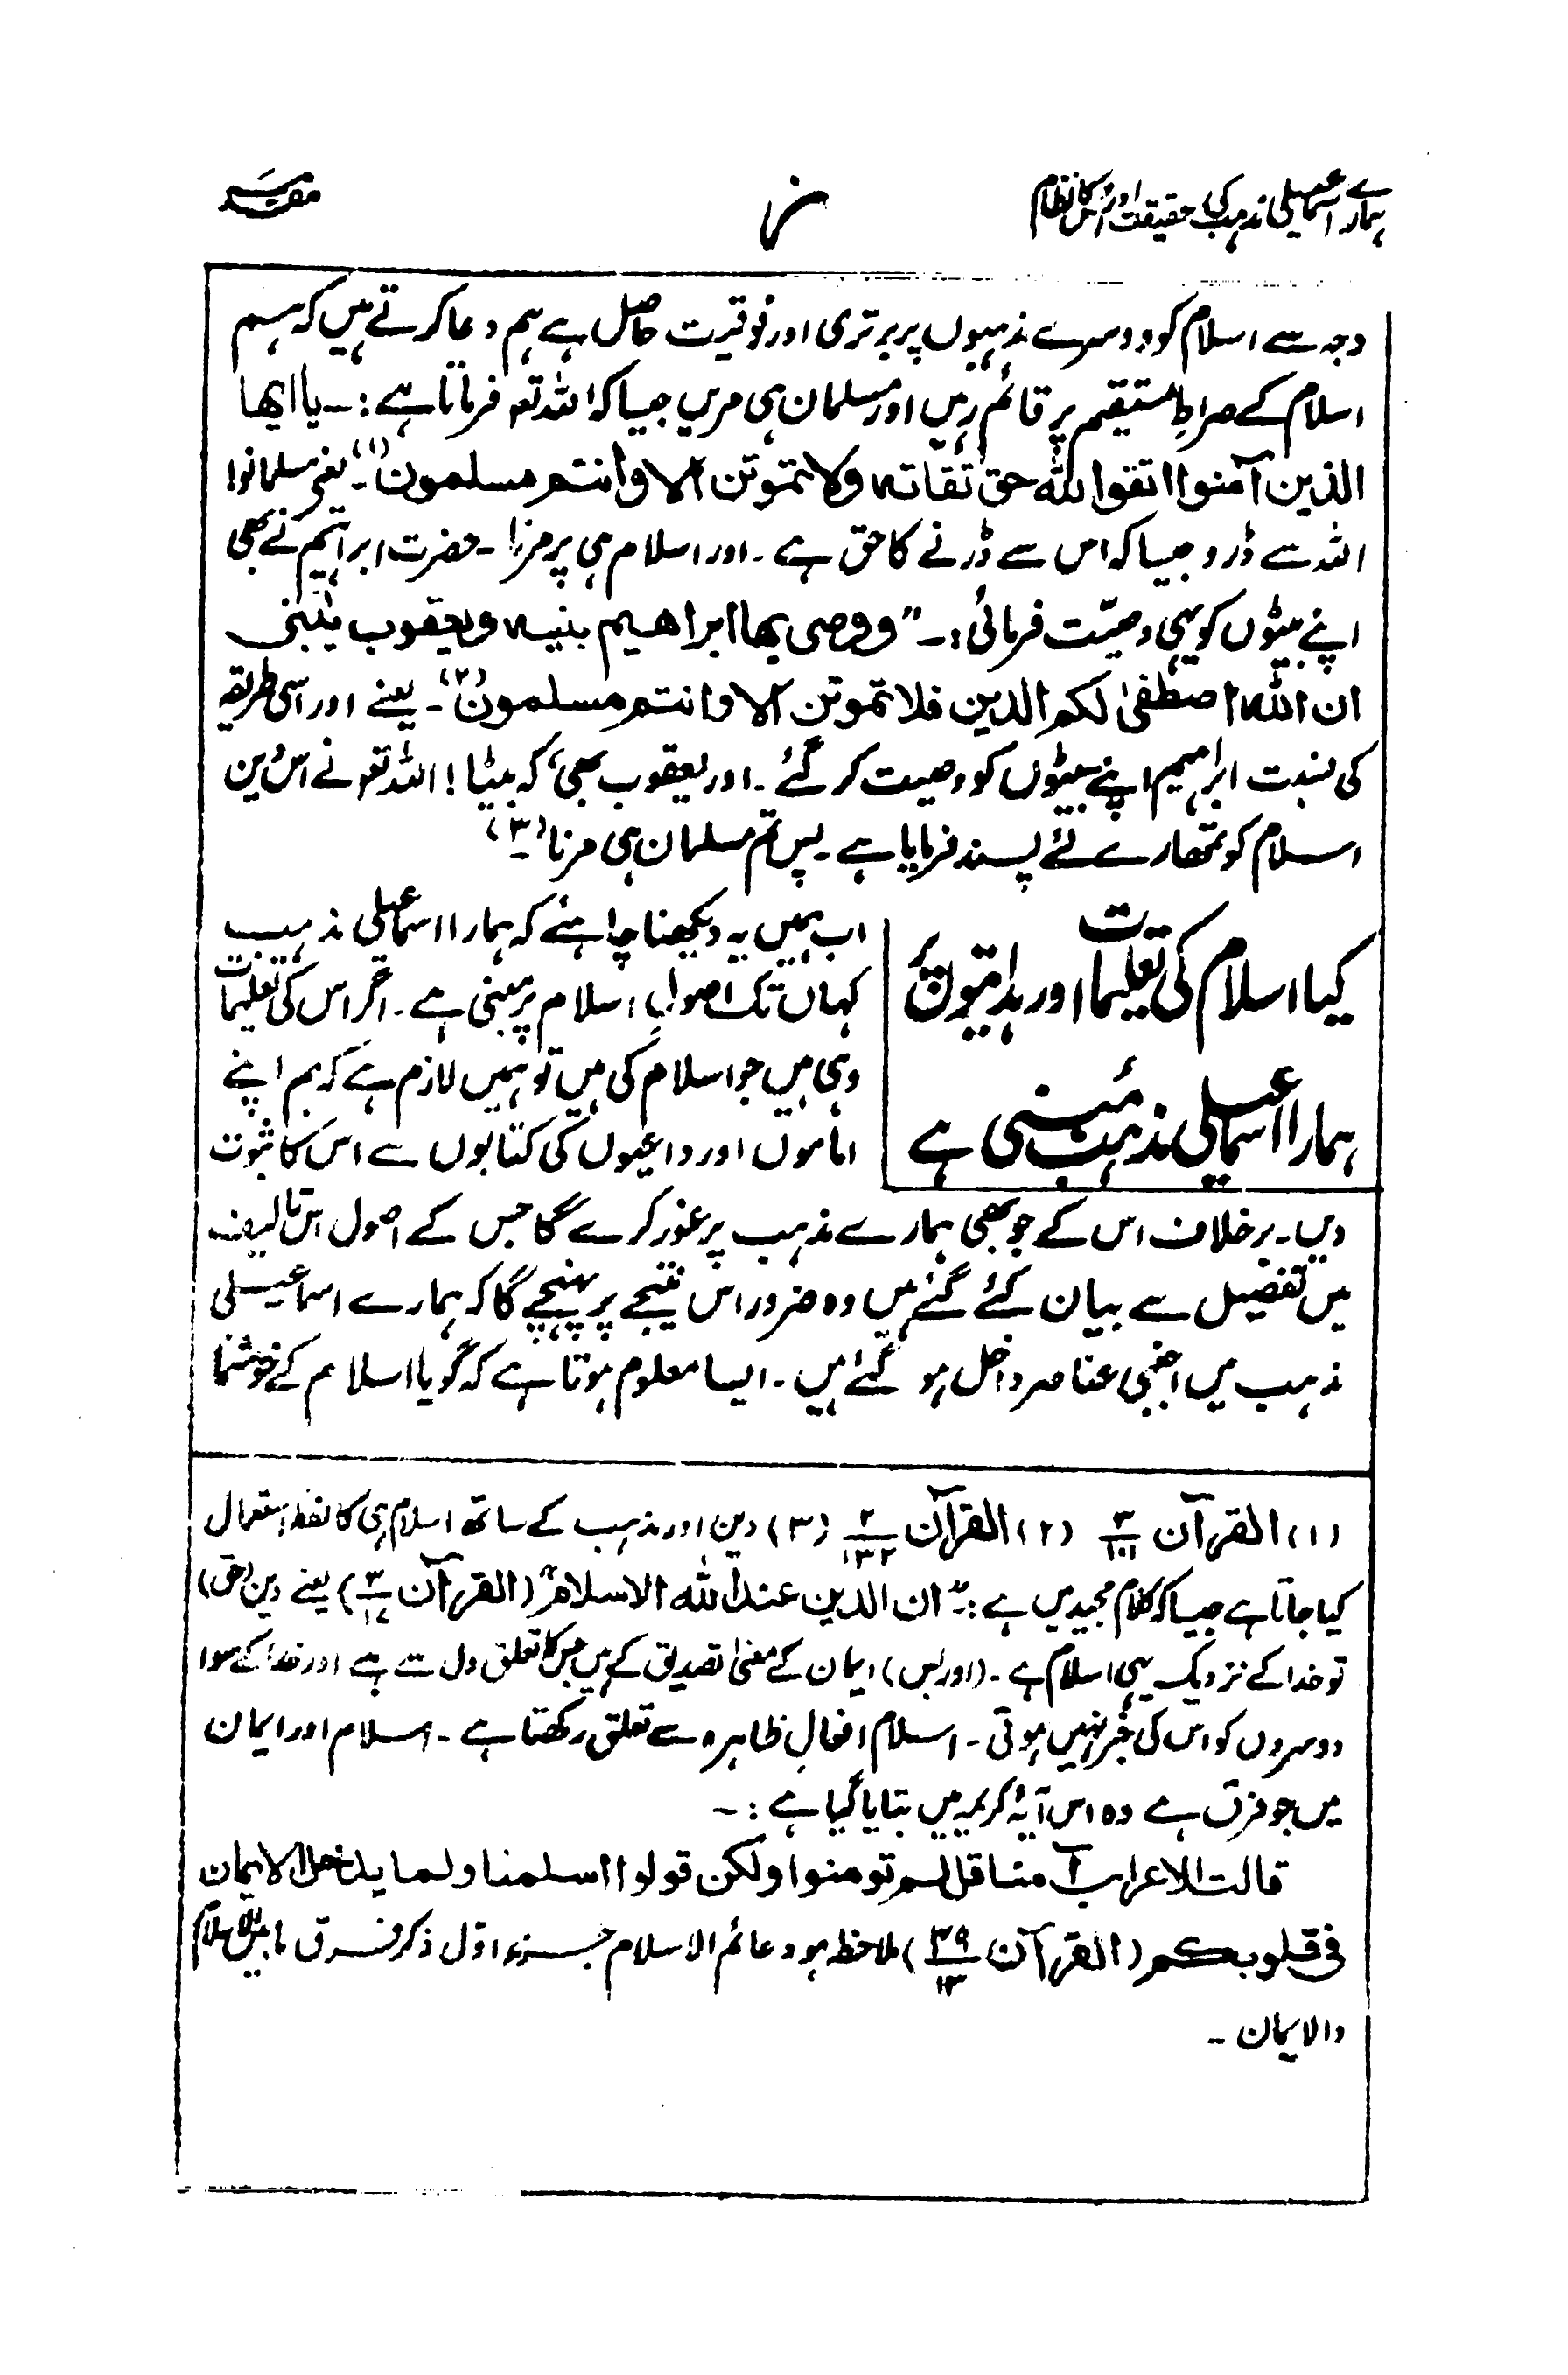 ہمارے اسماعیلی مذہب کی حقیقت اور اس کا نظام
ز
مقدمہ
وجہ سے اسلام کو دوسرے مذہبوں پر برتری اور فوقیت حاصل ہے ہم دعا کرتے ہیں کہ ہم
اسلام کے صراطِ مستقیم پر قائم رہیں اور مسلمان ہی مریں جیسا کہ اللہ تعہ فرماتا ہے :۔ یا ایھا
الذین آمنوا اتقوا اللہ حق تقاتہ ولا تموتن الا وانتم مسلمون (۱)۔ یعنی مسلمانو!
اللہ سے ڈرو جیسا کہ اس سے ڈرنے کا حق ہے ۔ اور اسلام ہی پر مرنا ۔ حضرت ابراہیم نے بھی
اپنے بیٹوں کو یہی وصیّت فرمائی :۔ "ووصی بھا ابراھیم بنیہ ویعقوب یٰبنی
ان اللہ اصطفیٰ لکم الدین فلا تموتن الا وانتم مسلمون" (۲)۔ یعنے اور اسی طریقہ
کی نسبت ابراہیم اپنے بیٹوں کو وصیت کر گئے ۔ اور یعقوب بھی، کہ بیٹا ! اللہ تعہ نے اس دین
اسلام کو تمھارے لئے پسند فرمایا ہے ۔ پس تم مسلمان ہی مرنا (۳)۔
کیا اسلام کی تعلیمات اور ہدایتوں پر
ہمارا اسماعیلی مذہب مبنی ہے
اب ہمیں یہ دیکھنا چاہئے کہ ہمارا اسماعیلی مذہب
کہاں تک اصولِ اسلام پر مبنی ہے ۔ اگر اس کی تعلیمات
وہی ہیں جو اسلام کی ہیں تو ہمیں لازم ہے کہ ہم اپنے
اماموں اور داعیوں کی کتابوں سے اس کا ثبوت
دیں ۔ برخلاف اس کے جو بھی ہمارے مذہب پر غور کرے گا جس کے اصول اس تالیف
میں تفصیل سے بیان کئے گئے ہیں وہ ضرور اس نتیجے پر پہنچے گا کہ ہمارے اسماعیلی
مذہب میں اجنبی عناصر داخل ہو گئے ہیں ۔ ایسا معلوم ہوتا ہے کہ گویا اسلام کے خوشنما
(۱) القرآن ۳/۱۰۱ (۲) القرآن ۲/۱۳۲ (۳) دین اور مذہب کے ساتھ اسلام ہی کا لفظ استعمال
کیا جاتا ہے جیسا کہ کلام مجید میں ہے :۔ "ان الدین عند اللہ الاسلام" (القرآن ۳/۱۷) یعنے دین (حق)
تو خدا کے نزدیک یہی اسلام ہے ۔ (اور بس) ایمان کے معنیٰ تصدیق کے ہیں جس کا تعلق دل سے ہے اور خدا کے سوا
دوسروں کو اس کی خبر نہیں ہوتی ۔ اسلام افعالِ ظاہرہ سے تعلق رکھتا ہے ۔ اسلام اور ایمان
میں جو فرق ہے وہ اس آیۂ کریمہ میں بتایا گیا ہے :۔
قالت الاعراب آمنا قل لم تومنوا ولکن قولوا اسلمنا ولما یدخل الایمان
فی قلوبکم (القرآن ۴۹/۱۴) ملاحظہ ہو دعائم الاسلام جزء اوّل ذکر فرق مابین الاسلام
والایمان ۔